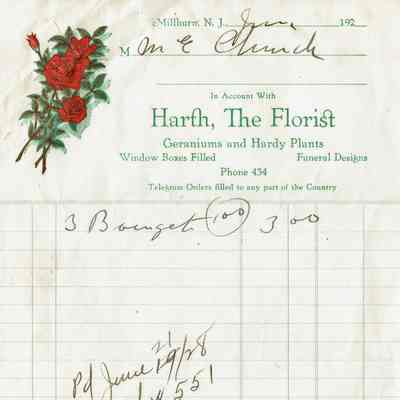 Millburn, N. J. June 192
M M E Church
In Account With
Harth, The Florist
Geraniums and Hardy Plants
Window Boxes Filled Funeral Designs
Phone 434
Telegram Orders filled to any part of the Country
3 Bouquets 100 3 00
21
Pd June 19/28
551